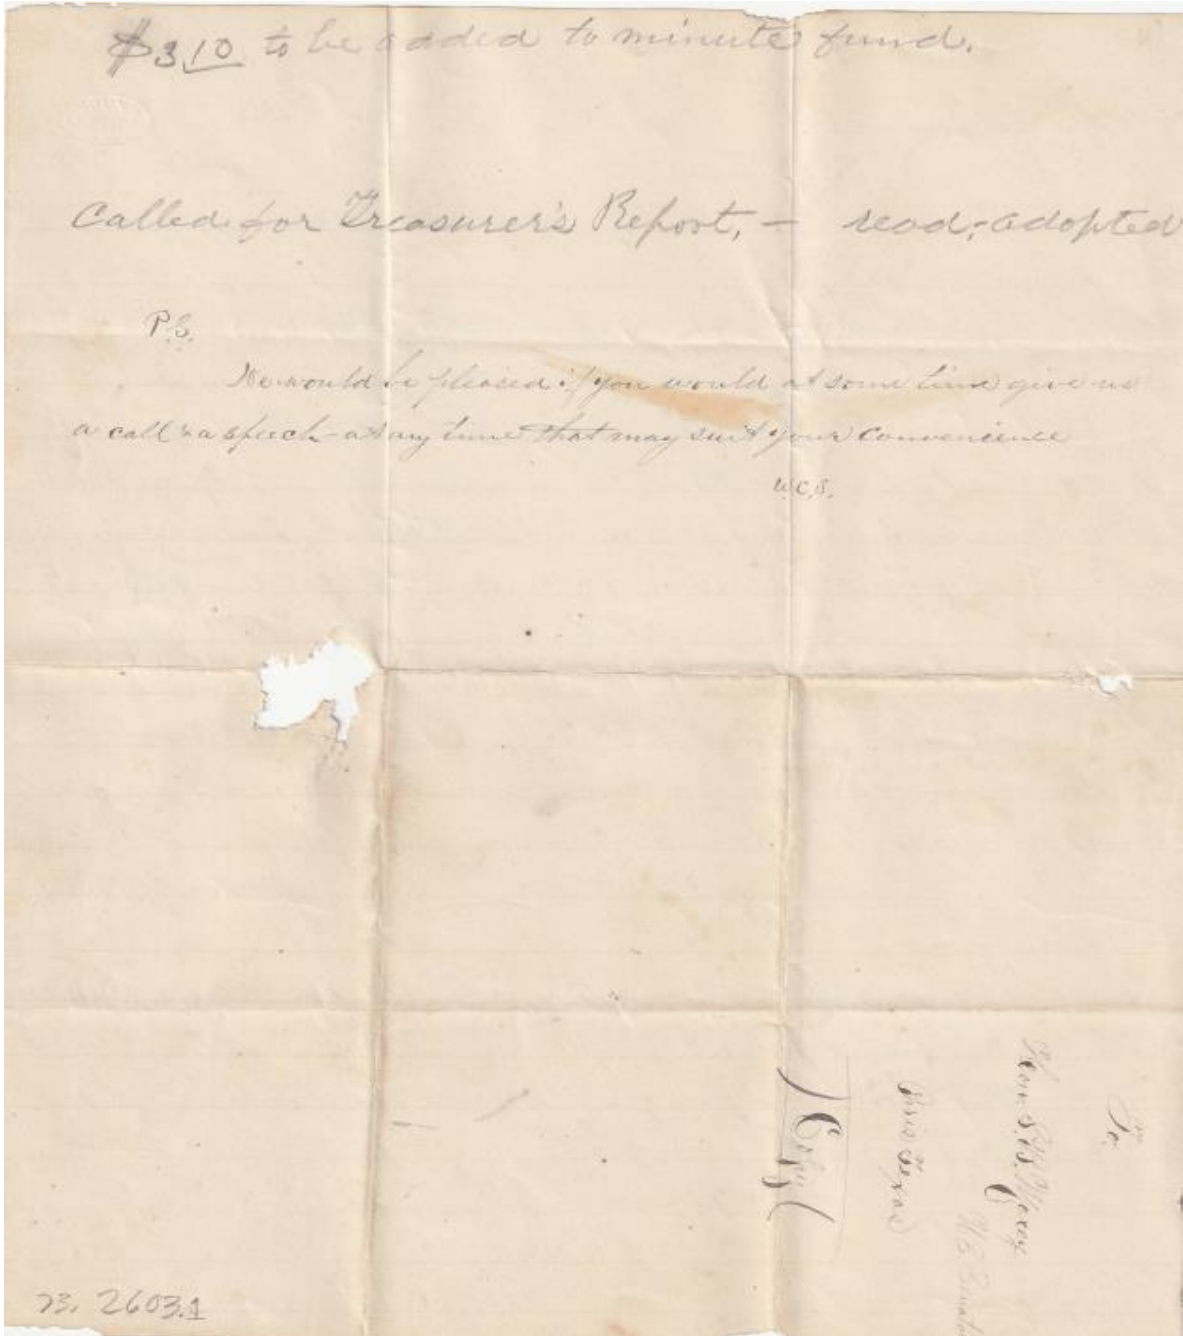 $3.10 to be added to minute fund.
Called for Treasurer's Report, — read; adopted
P.S.
We would be pleased if you would at some time give us
a call & a speech - at any time that may suit your convenience
W.C.S.
To.
Hon. S.B. Maxey
U.S. Senator
Paris Texas
(Copy)
73. 2603.1